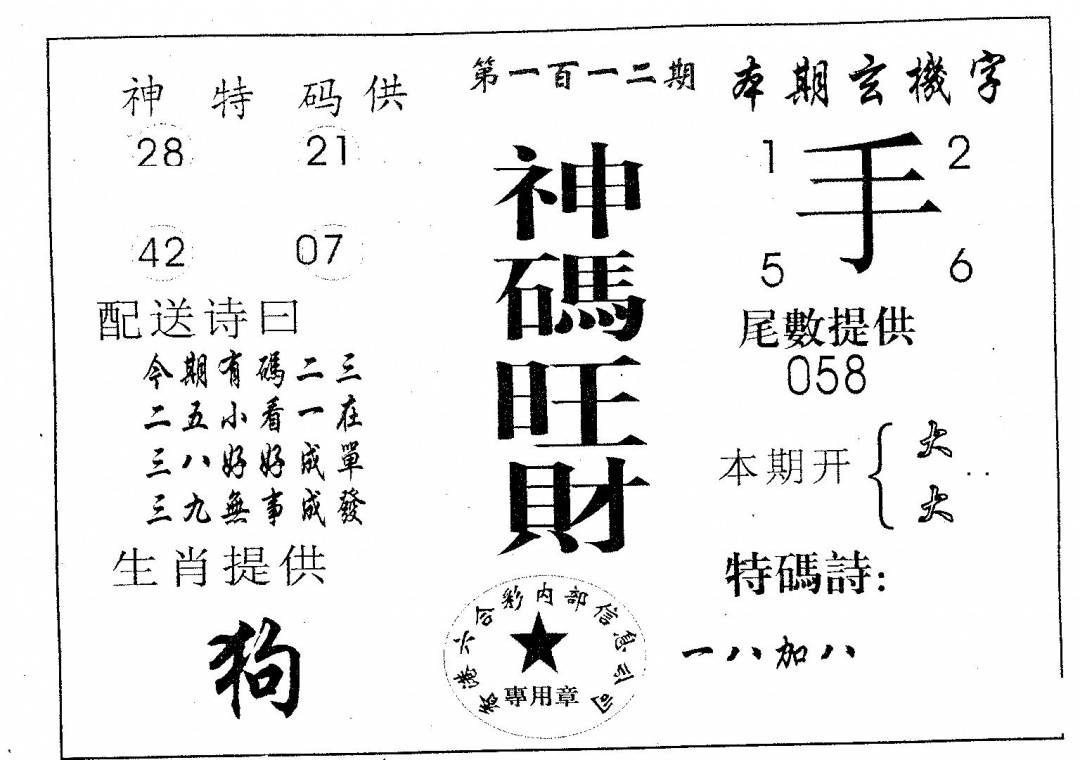 神特码供
28 21
42 07
配送诗曰
今期有碼二三
二五小看一在
三八好好成單
三九無事成發
生肖提供
狗
第一百一二期
神碼旺財
香港六合彩内部信息公司
專用章
本期玄機字
1 手 2
5 6
尾數提供
058
本期开{大
大
特碼詩:
一八加八